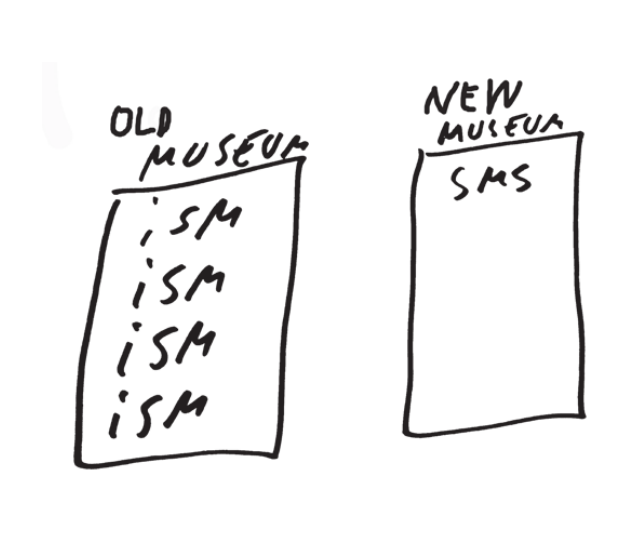 OLD
MUSEUM
iSM
iSM
iSM
iSM
NEW
MUSEUM
SMS